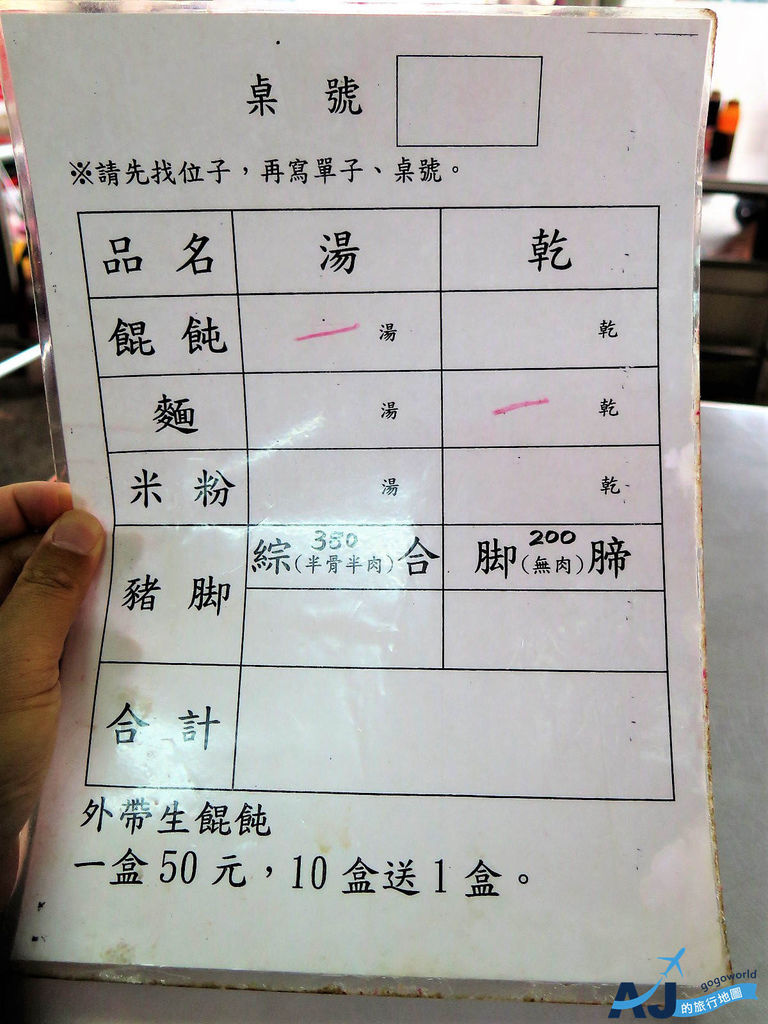 桌 號
※請先找位子，再寫單子、桌號。
品 名 湯 乾
餛 飩 一 湯 乾
麵 湯 一 乾
米 粉 湯 乾
350 200
豬 脚 綜(半骨半肉)合 脚(無肉)腣
合 計
外帶生餛飩
一盒50元，10盒送1盒。
gogoworld
AJ的旅行地圖